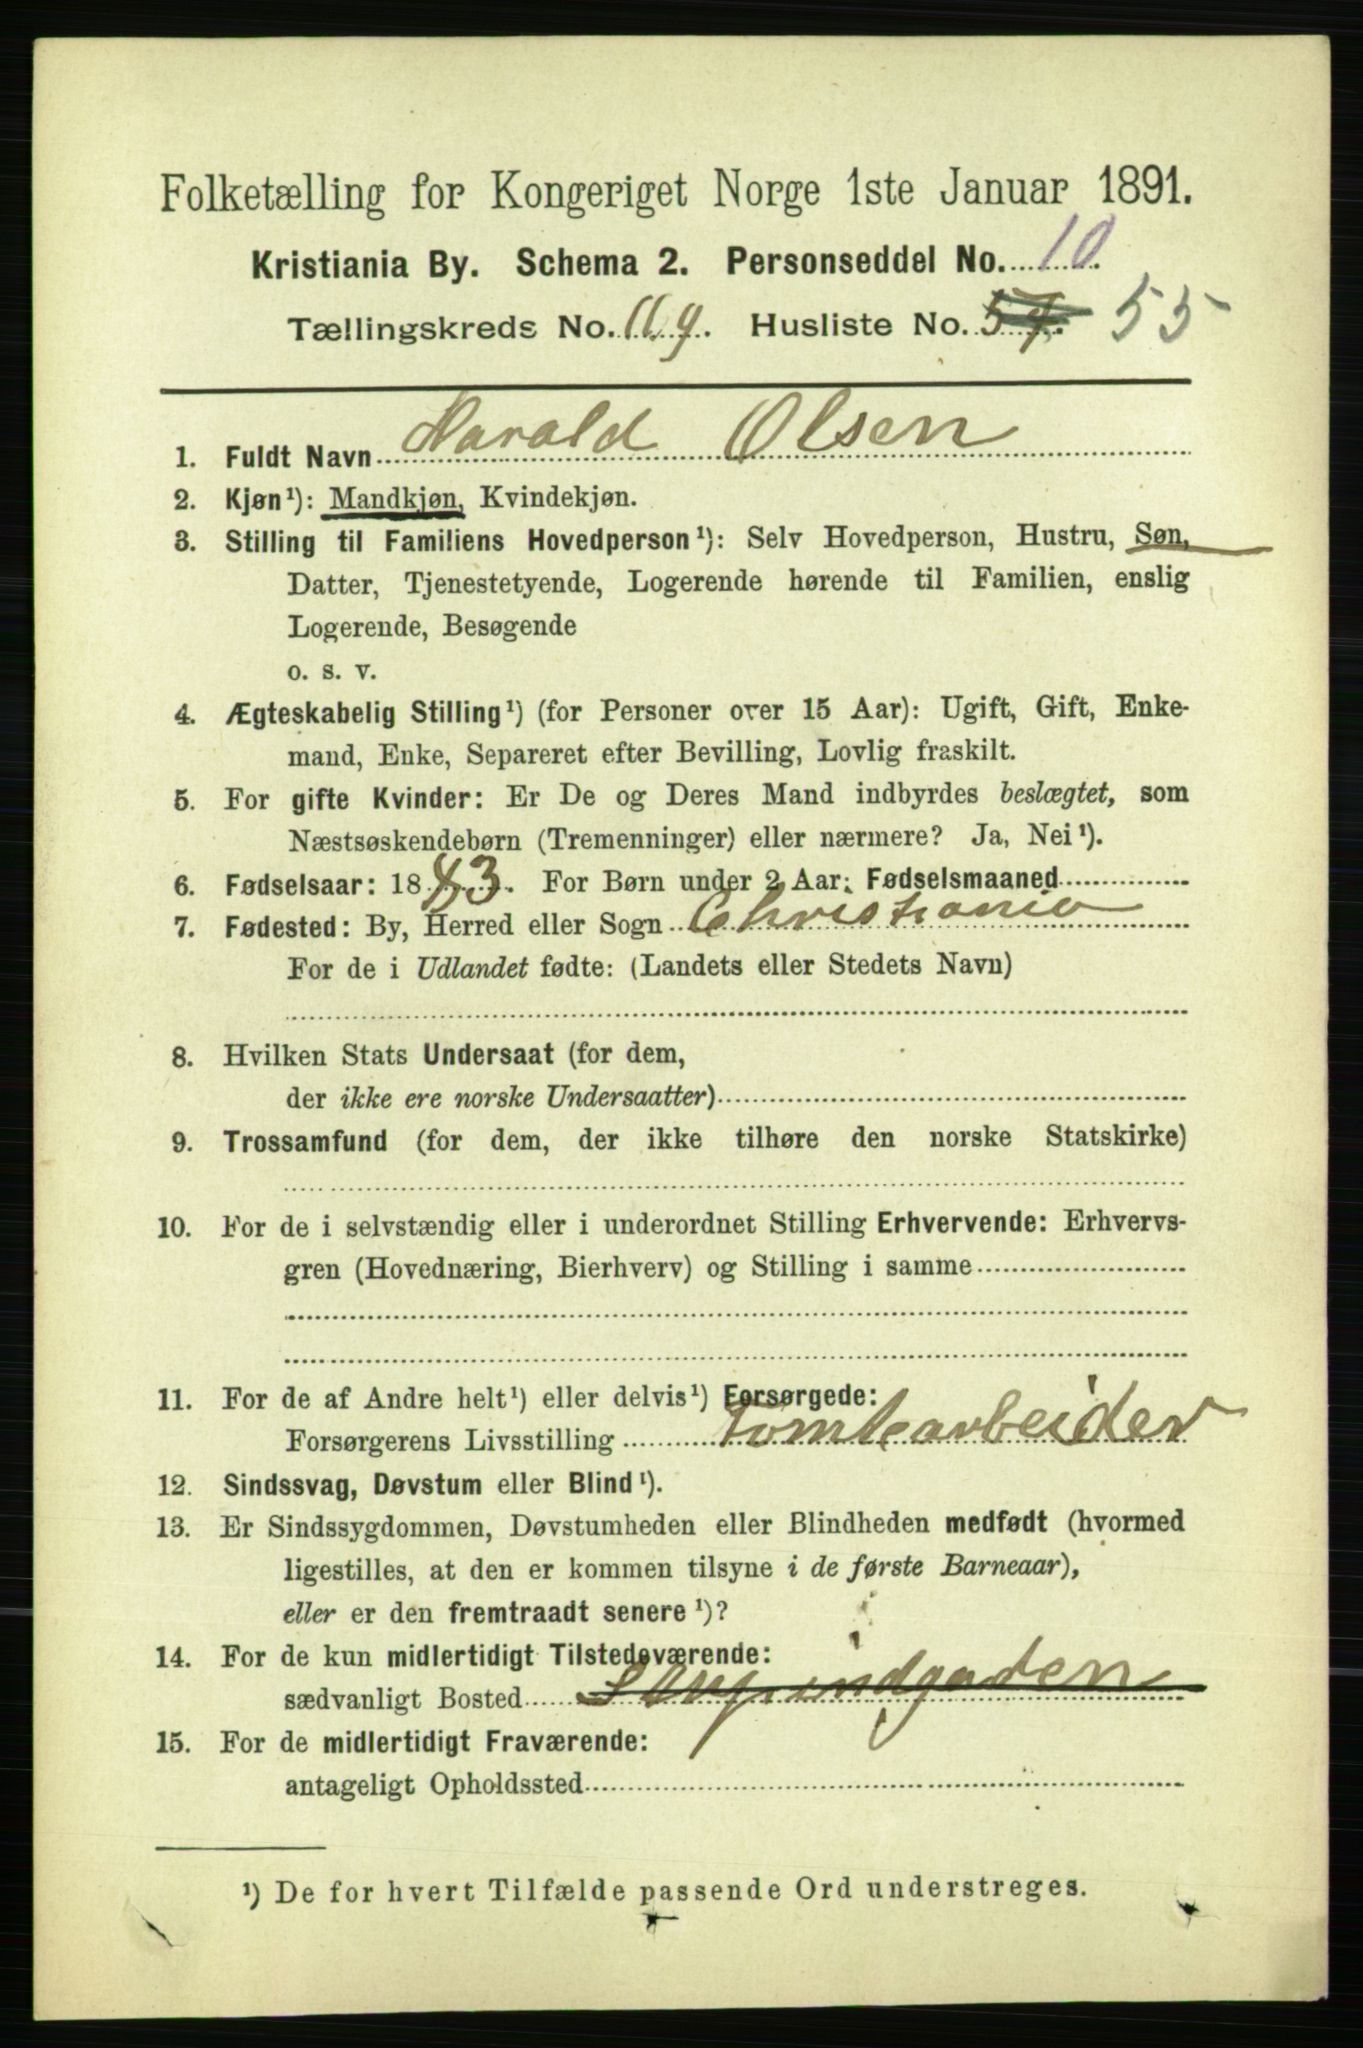 Folketælling for Kongeriget Norge 1ste Januar 1891.
Kristiania By. Schema 2. Personseddel No. 10.
Tællingskreds No. 119. Husliste No. 57. 55
1. Fuldt Navn Harald Olsen
2. Kjøn¹): Mandkjøn, Kvindekjøn.
3. Stilling til Familiens Hovedperson¹): Selv Hovedperson, Hustru, Søn,
Datter, Tjenestetyende, Logerende hørende til Familien, enslig
Logerende, Besøgende
o. s. v.
4. Ægteskabelig Stilling¹) (for Personer over 15 Aar): Ugift, Gift, Enke-
mand, Enke, Separeret efter Bevilling, Lovlig fraskilt.
5. For gifte Kvinder: Er De og Deres Mand indbyrdes beslægtet, som
Næstsøskendebørn (Tremenninger) eller nærmere? Ja, Nei¹).
6. Fødselsaar: 1883. For Børn under 2 Aar: Fødselsmaaned
7. Fødested: By, Herred eller Sogn Christiania
For de i Udlandet fødte: (Landets eller Stedets Navn)
8. Hvilken Stats Undersaat (for dem,
der ikke ere norske Undersaatter)
9. Trossamfund (for dem, der ikke tilhøre den norske Statskirke)
10. For de i selvstændig eller i underordnet Stilling Erhvervende: Erhvervs-
gren (Hovednæring, Bierhverv) og Stilling i samme
11. For de af Andre helt¹) eller delvis¹) Forsørgede:
Forsørgerens Livsstilling Tomtearbeider
12. Sindssvag, Døvstum eller Blind¹).
13. Er Sindssygdommen, Døvstumheden eller Blindheden medfødt (hvormed
ligestilles, at den er kommen tilsyne i de første Barneaar),
eller er den fremtraadt senere¹)?
14. For de kun midlertidigt Tilstedeværende:
sædvanligt Bosted
15. For de midlertidigt Fraværende:
antageligt Opholdssted
¹) De for hvert Tilfælde passende Ord understreges.